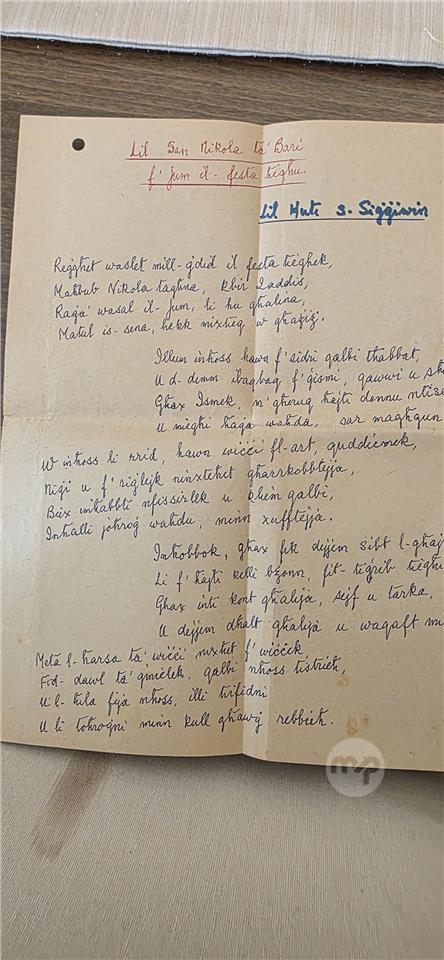 Lil San Nikola ta' Bari
f' Jum il-festa tiegħu.
Lil Ħuti s-Siġġiwin
Reġgħet waslet mill-ġdid il festa tiegħek,
Maħbub Nikola tagħna, Kbir Qaddis,
Raġa' wasal il-Jum, li hu għalina,
Matul is-sena, hekk mixtieq w għażiż.
Illum inħoss hawn f'sidri qalbi tħabbat,
U d-demm ibaqbaq f'ġismi, qawwi u
Għax Ismek, m'għeruq ħajti donnu
U miegħi ħaġa waħda, sar magħqun
W inħoss li rrid, hawn wiċċi fl-art, quddiemek,
Niġi u f'riġlejk ninxteħet għarrkobbtejja,
Biex inħabbti nfissirlek u kliem qalbi,
Inħalli joħroġ waħdu, minn xufftejja.
Inħobbok, għax fik dejjem sibt l-għaj
Li f'ħajti kelli bżonn, fit-tiġrib tiegħi
Għax inti kont għalija, sejf u tarka,
U dejjem dħalt għalija u waqaft
Meta l-ħarsa ta' wiċċi nixħet f'wiċċek
Fid-dawl ta' ġmielek, qalbi nħoss tistrieħ,
U l-ħila fija nħoss, illi trifidni
U li toħroġni minn kull għawġ rebbieħ.
mp